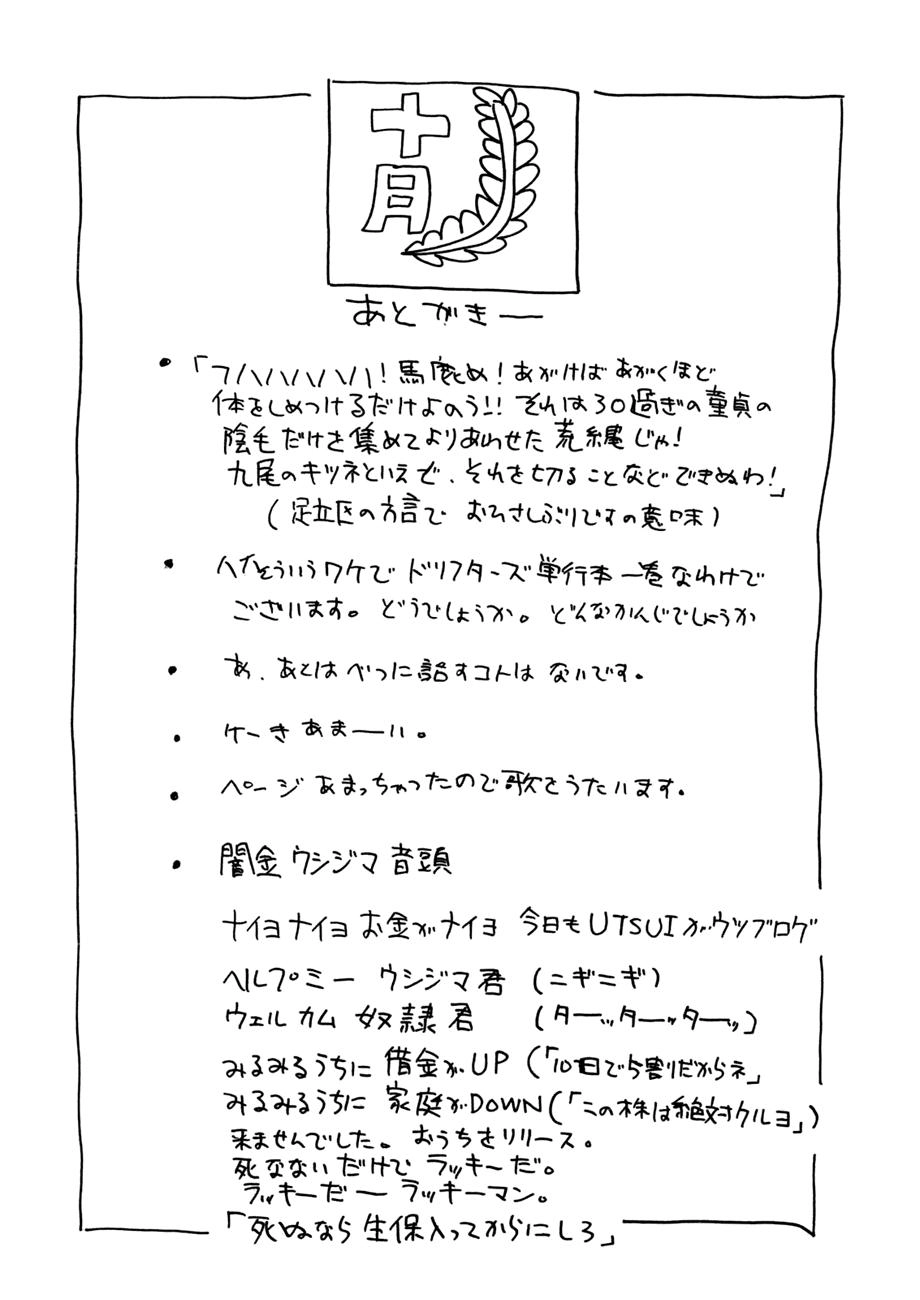 十月
あとがきー
・「フハハハハハ!馬鹿め!あがけばあがくほど
体をしめつけるだけよのう!!それは30過ぎの童貞の
陰毛だけを集めてよりあわせた荒縄じゃ!
九尾のキツネといえど、それを切ることなどできぬわ!」
(足立区の方言で おひさしぶりですの意味)
・ハイそういうワケでドリフターズ単行本一巻なわけで
ございます。どうでしょうか。どんなかんじでしょうか
・あ、あとはべつに話すコトはないです。
・ケーきあまーい。
・ページあまっちゃったので歌をうたいます。
・闇金ウシジマ音頭
ナイヨナイヨお金がナイヨ 今日もUTSUIがウツブログ
ヘルプミー ウシジマ君 (ニギニギ)
ウェルカム 奴隷君 (ターッターッターッ)
みるみるうちに 借金がUP(「10日で5割だからネ」
みるみるうちに 家庭がDOWN(「この株は絶対クルヨ」)
来ませんでした。おうちをリリース。
死なないだけでラッキーだ。
ラッキーだーラッキーマン。
「死ぬなら生保入ってからにしろ」